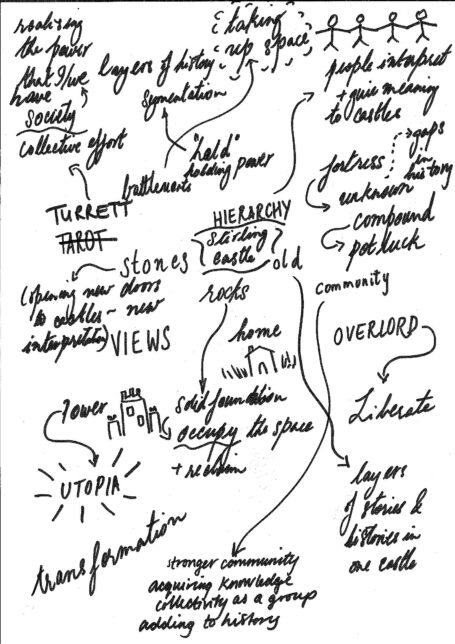 realising
the power
that I/we
have
society
collective effort
layers of history
segmentation
taking
up space
people interpret
+ give meaning
to castles
"held"
holding power
battlements
fortress
gaps
in
history
unknown
compound
potluck
TURRETT
TAROT
HIERARCHY
Stirling
castle
old
stones
(opening new doors
to castles ~ new
interpretation)
VIEWS
rocks
community
home
OVERLORD
Liberate
Tower
solid foundation
occupy the space
+ reclaim
UTOPIA
transformation
layers
of stories &
histories in
one castle
stronger community
acquiring knowledge
collectivity as a group
adding to history